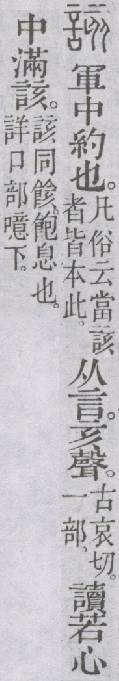 䛳 軍中約也。凡俗云當該者皆本此。从言。亥聲。古哀切。一部。讀若心
中滿該。該同餩、飽息也。詳口部噫下。